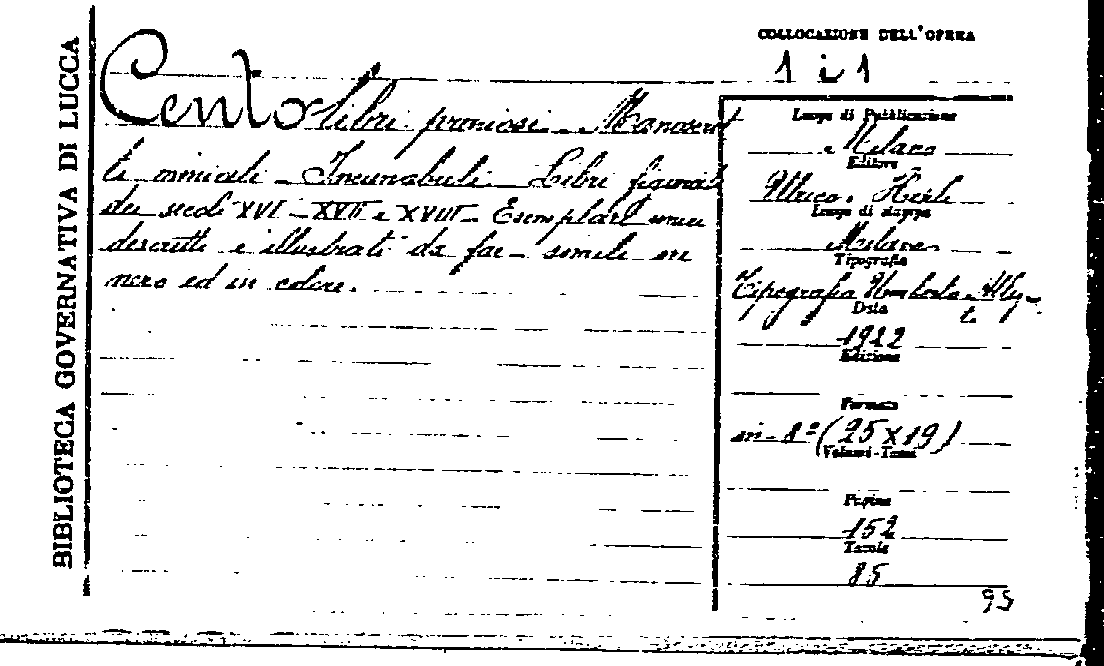 BIBLIOTECA GOVERNATIVA DI LUCCA
COLLOCAZIONE DELL'OPERA
1 i 1
Cento libri preziosi - Manoscrit
ti miniati - Incunabuli - Libri figurati
dei secoli XVI - XVII e XVIII - Esemplari unici
descritti e illustrati da fac-simili in
nero ed in colore.
Luogo di Pubblicazione
Milano
Editore
Ulrico Hoepli
Luogo di stampa
Milano
Tipografia
Tipografia Umberto Alle-
Data
1922
Edizione
Formato
in-8º (25x19)
Volumi-Tomi
Pagine
152
Tavole
85
95